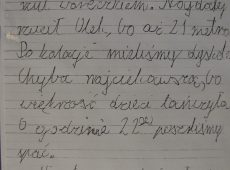 rzut woreczkiem. Najdalej
rzucił Olek, bo aż 21 metrów
Po kolacji mieliśmy dyskotekę
Chyba najciekawsza, bo
większość dzieci tańczyła
O godzinie 22⁰⁰ poszliśmy
spać.